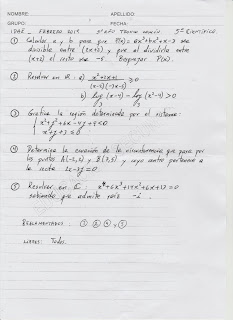 NOMBRE: APELLIDO:
GRUPO: FECHA:
IDAL - FEBRERO 2015 5º año Tronco común 5º Científico
① Calcular a y b para que P(x) = ax³+bx²+x-3 sea
divisible entre (2x+2) y que al dividirla entre
(x+2) el resto sea -5. Expresar P(x).
② Resolver en R: a) x²+2x+1 / (x-5)(-3x-5) ≥0
b) log (x-4) - log (x²-4) >0
③ Grafica la región determinada por el sistema:
x²+y²+6x-4y+9<0
x+y+3≤0
④ Determina la ecuación de la circunferencia que pasa por
los puntos A(-2,2) y B(7,5) y cuyo centro pertenece a
la recta 2x-3y=0.
⑤ Resolver en C: x⁴+6x³+14x²+6x+13=0
sabiendo que admite raíz -i.
REGLAMENTADOS: ① ② ④ y ⑤
LIBRES: Todos.